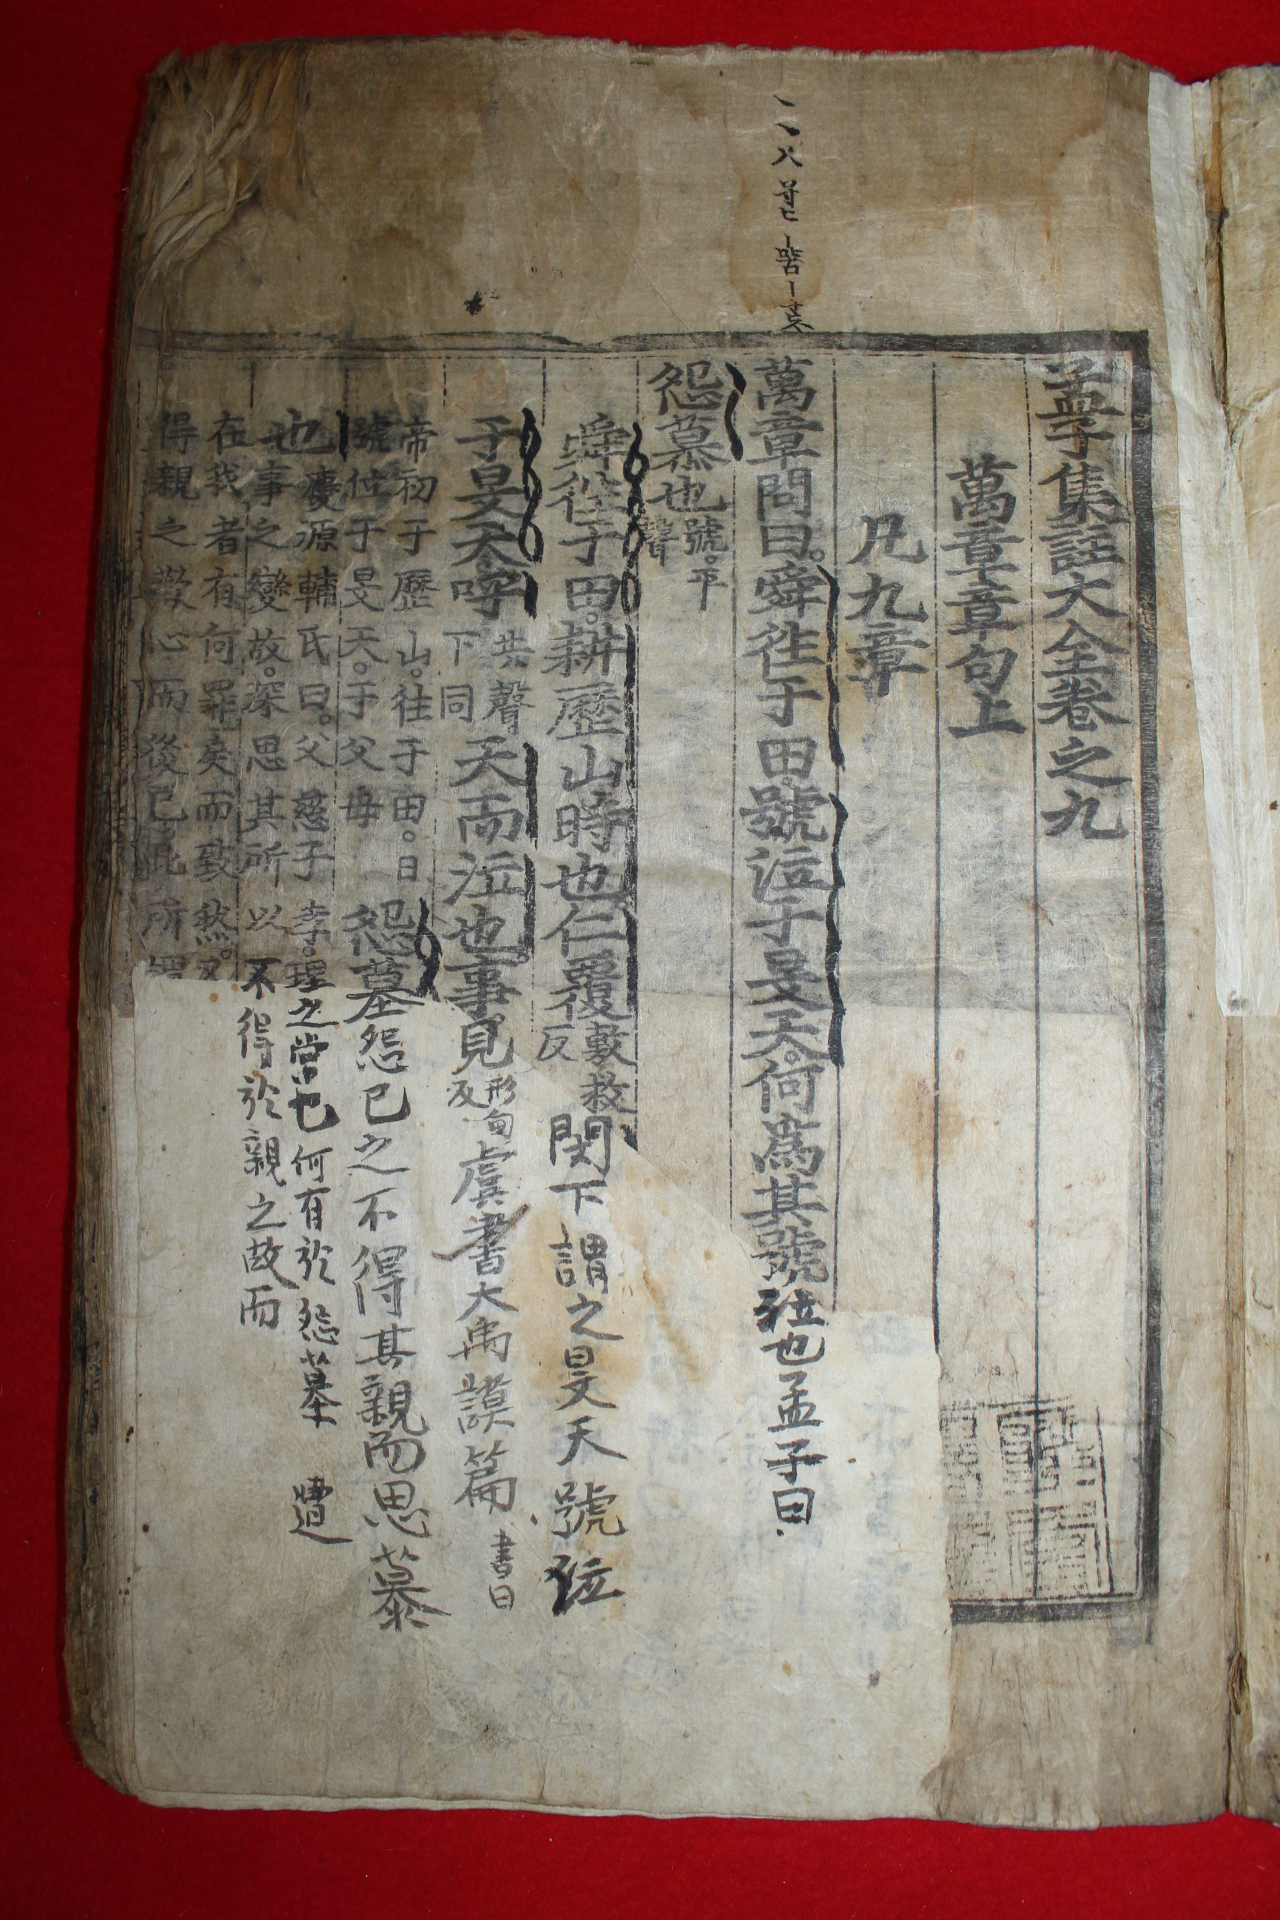 孟子集註大全卷之九
萬章章句上
凡九章
萬章問曰舜往于田號泣于旻天何爲其號泣也孟子曰
怨慕也號平聲
舜往于田耕歷山時也仁覆敷救反閔下謂之旻天號泣
于旻天呼去聲下同天而泣也事見形甸反虞書大禹謨篇書曰
帝初于歷山往于田日
號泣于旻天于父母
怨慕怨己之不得其親而思慕
也慶源輔氏曰父慈子孝理之常也何有於怨慕遭
事之變故深思其所以不得於親之故而
在我者有何罪矣而致然
得親之懽心而後已此所